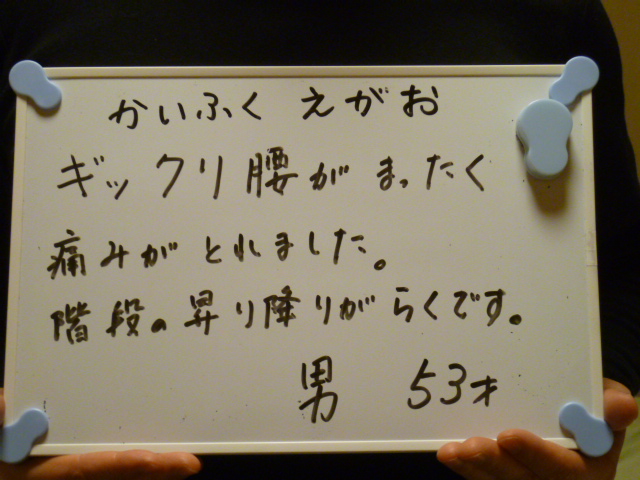 かいふく えがお
ギックリ腰がまったく
痛みがとれました。
階段の昇り降りがらくです。
男 53才